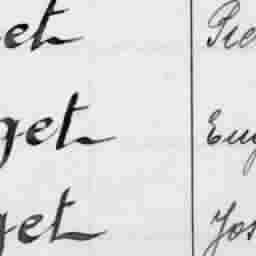 et Pie
get Eug
get Jos